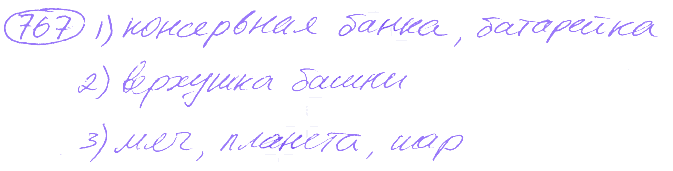 767 1) консервная банка, батарейка
2) верхушка башни
3) мяч, планета, шар